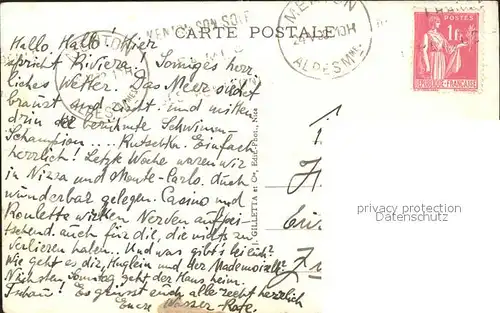 CARTE POSTALE
MENTON SON SOLE
MENTON
10H
ALPES MMES
POSTES
1F
REPUBLIQUE-FRANCAISE
Hallo. Hallo! Hier
spricht Riviera! Sonniges herr-
liches Wetter. Das Meer siedet
braust und zischt und mitten
drin der berühmte Schwimm-
Schampion ..... Einfach
herrlich! Letzte Woche waren wir
in Nizza und Monte-Carlo. Auch
wunderbar gelegen. Casino und
Roulette wirken Nerven aufpei-
tschend. auch für die, die nichts zu
verlieren haben. Und was gibt's bei euch?
Wie geht es dir, Huglein und der Mademoiselle?
Nächsten Sonntag geht der Haus heim.
Tschau! Es grüsst euch alle recht herzlich
Eure Wasser-Ratte.
J. GILLETTA et Co, Edit.-Phot., Nice
Datenschutz
privacy Daten
privacy protection